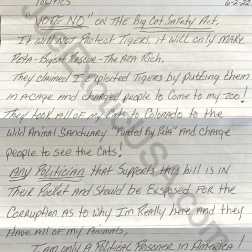 POLITICS 6-2-22
"VOTE NO" ON the Big Cat Safety Act,
It will Not Protect Tigers, it will only make
Peta - Big Cat Rescue - The ARA Rich,
They claimed I exploited Tigers by putting them
IN A CAGE and charged people to Come to my ZOO!
They took all of my Cats to Colorado to the
Wild Animal Sanctuary "Funded By Peta" and charge
people to see the Cats!
Any Politician that Supports this bill is in
Their Pocket and Should be Exposed FOR the
Corruption as to why Im Really here and they
Have all of my Animals,
I am only A Political Prisoner in America